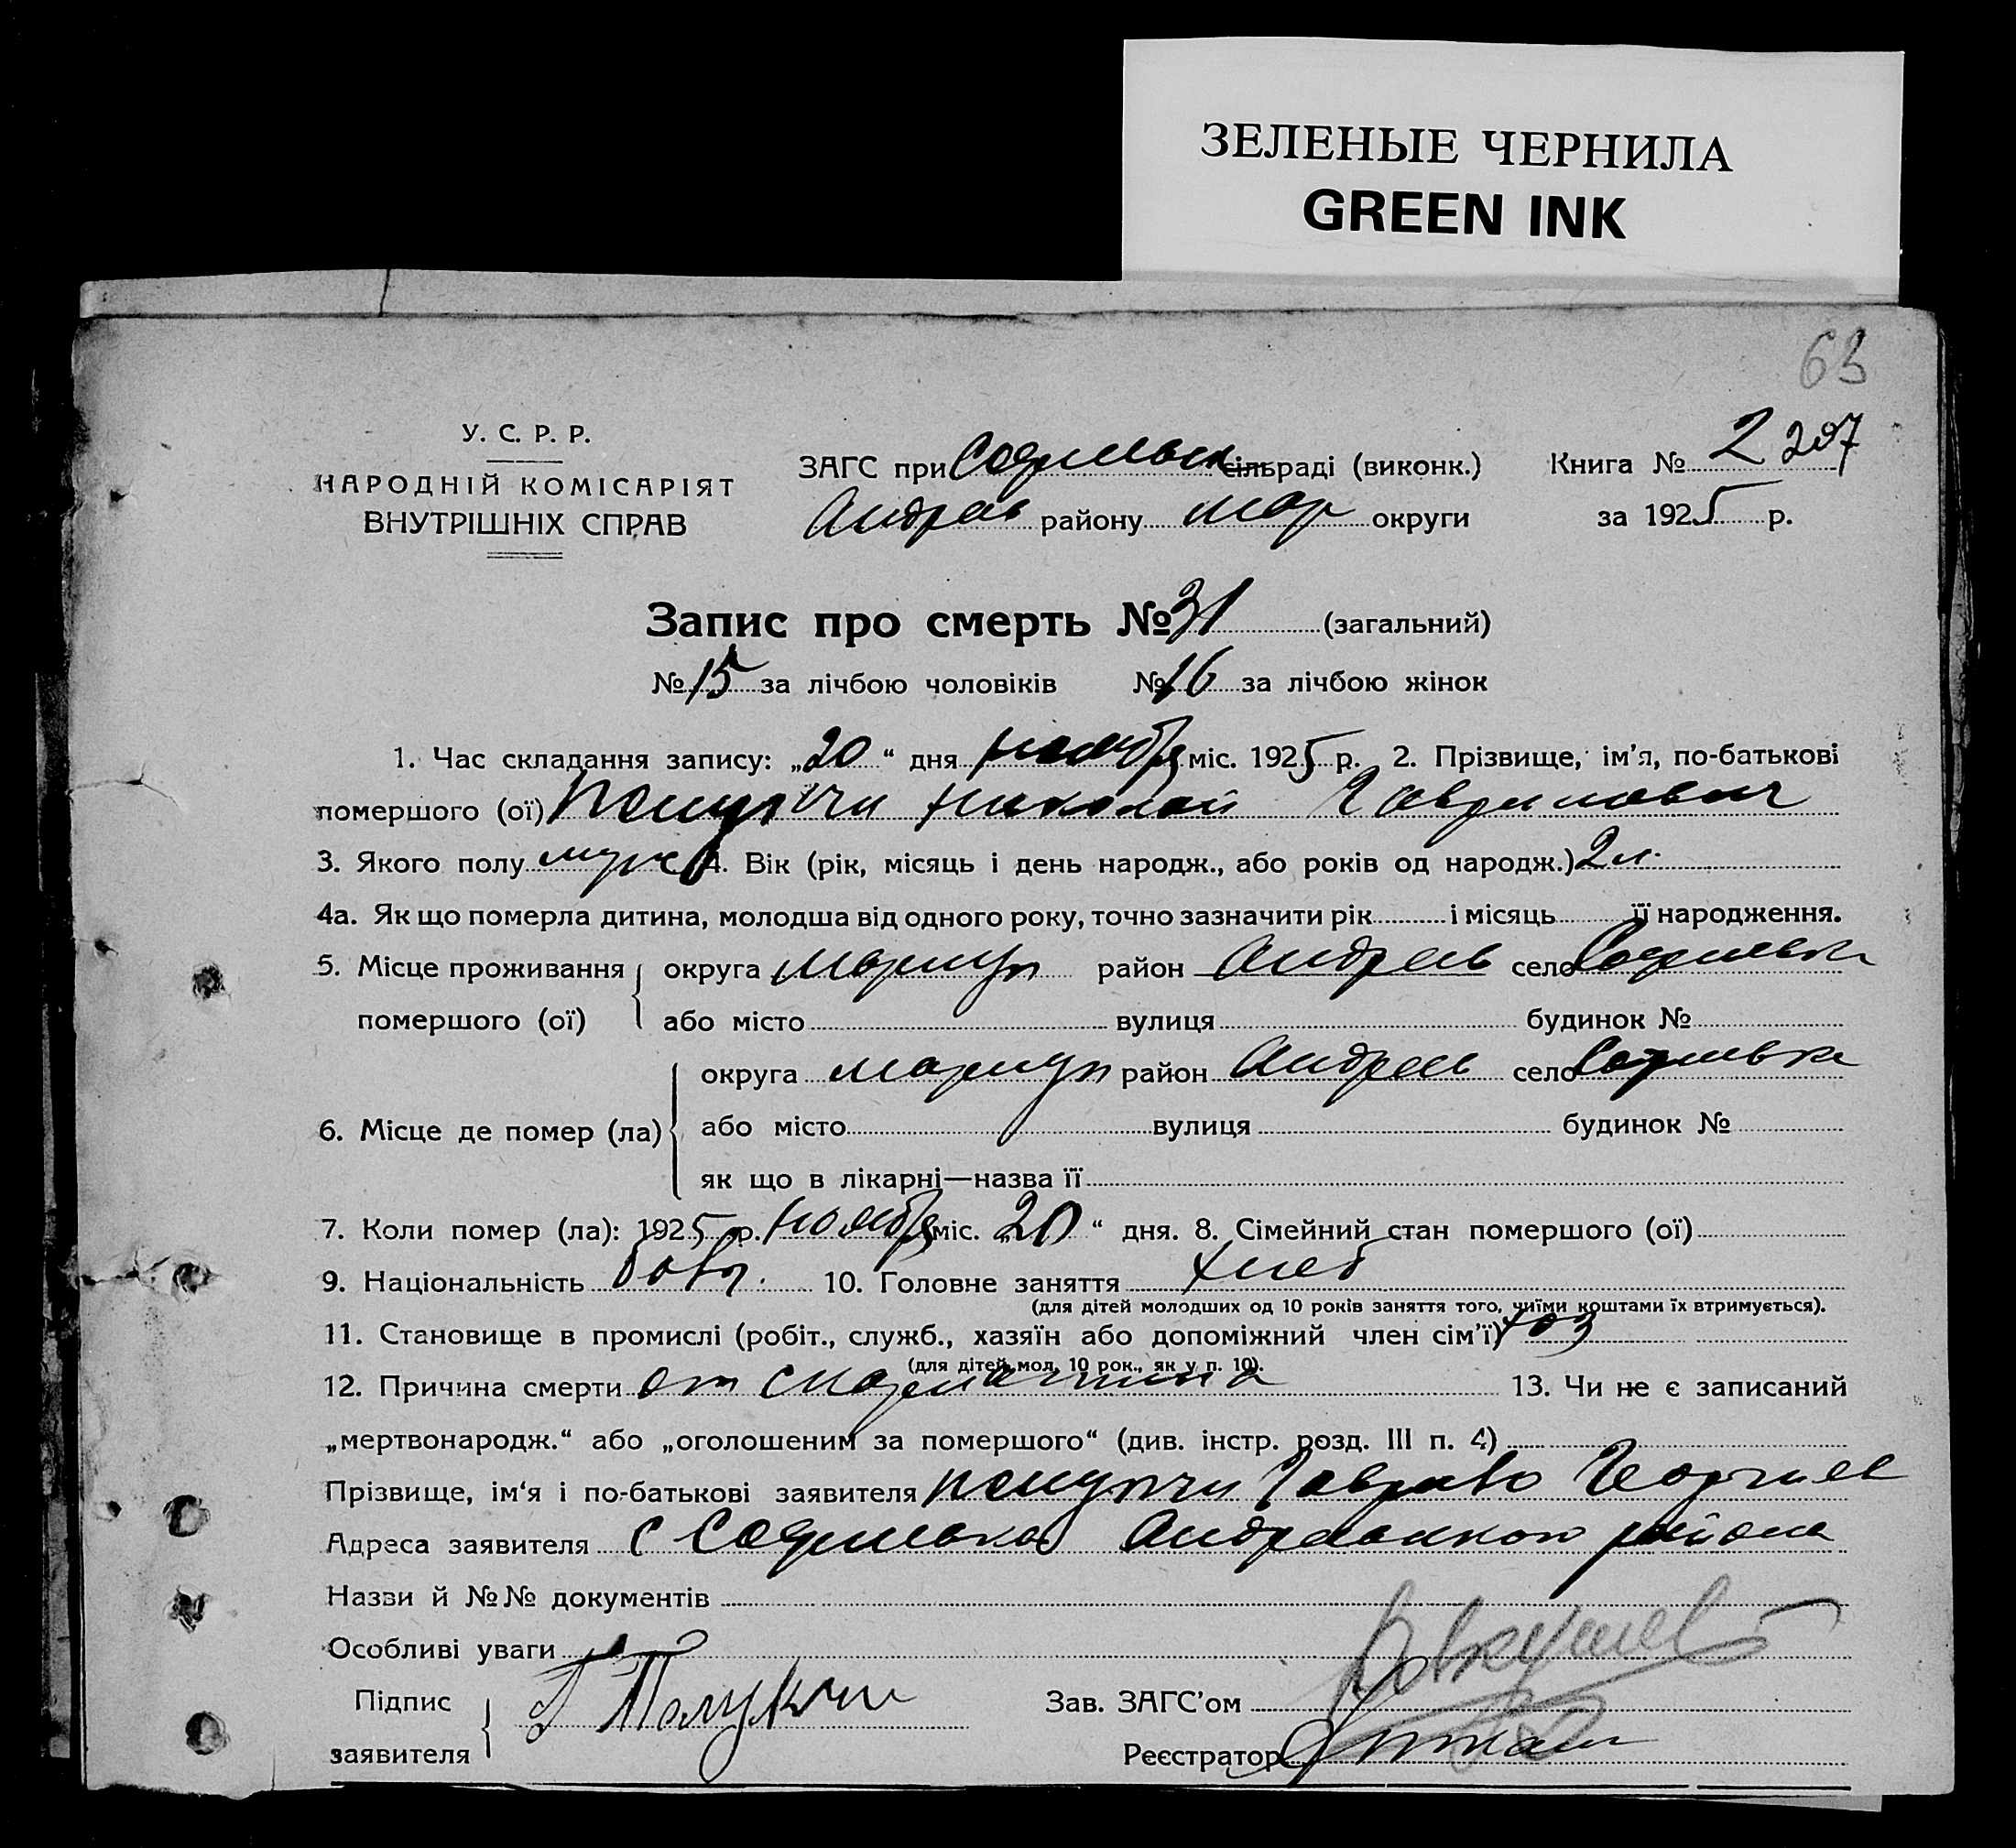 ЗЕЛЕНЫЕ ЧЕРНИЛА
GREEN INK
63
У. С. Р. Р.
НАРОДНІЙ КОМІСАРІЯТ
ВНУТРІШНІХ СПРАВ
ЗАГС при сільраді (виконк.)
Андрев району Мар округи
Книга № 2 207
за 1925 р.
Запис про смерть № 31 (загальний)
№ 15 за лічбою чоловіків № 16 за лічбою жінок
1. Час складання запису: „20“ дня ноября міс. 1925 р. 2. Прізвище, ім'я, по-батькові
помершого (ої) Николай Гаврилович
3. Якого полу муж 4. Вік (рік, місяць і день народж., або років од народж.) 2 л.
4а. Як що померла дитина, молодша від одного року, точно зазначити рік і місяць її народження.
5. Місце проживання округа Мариуп район Андреев село
помершого (ої) або місто вулиця будинок №
округа Мариуп район Андреев село
6. Місце де помер (ла) або місто вулиця будинок №
як що в лікарні—назва її
7. Коли помер (ла): 1925 р. ноября міс. „20“ дня. 8. Сімейний стан помершого (ої)
9. Національність 10. Головне заняття хлеб
(для дітей молодших од 10 років заняття того, чиїми коштами їх втримується).
11. Становище в промислі (робіт., служб., хазяїн або допоміжний член сім'ї) хоз
(для дітей мол. 10 рок., як у п. 10).
12. Причина смерти от скарлатина 13. Чи не є записаний
„мертвонародж.“ або „оголошеним за помершого“ (див. інстр. розд. III п. 4)
Прізвище, ім'я і по-батькові заявителя
Адреса заявителя с района
Назви й №№ документів
Особливі уваги
Підпис
заявителя
Зав. ЗАГС'ом
Реєстратор